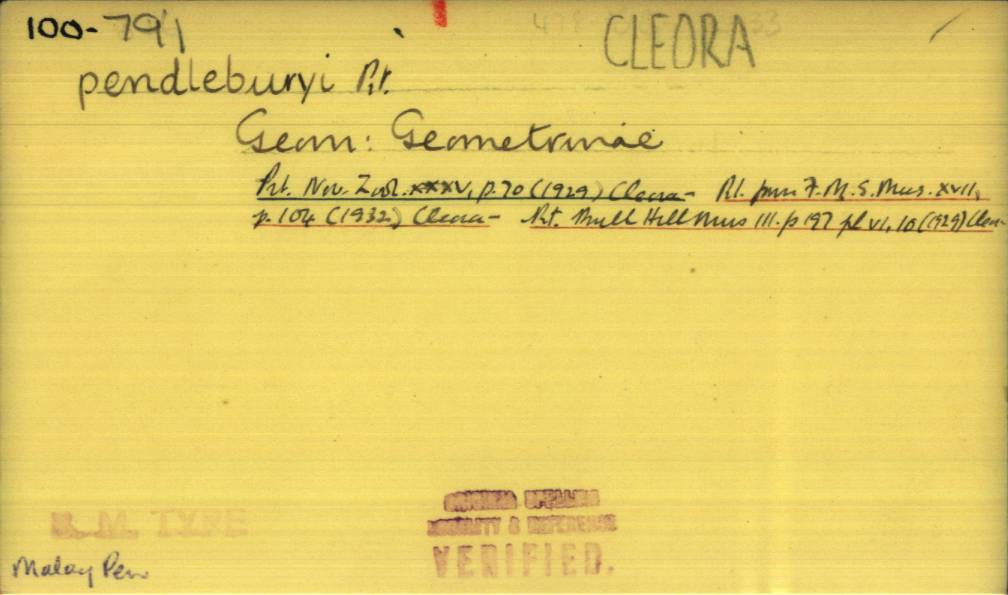 100-791 CLEORA
pendleburyi Prt.
Geom: Geometrinae
Prt. Nov. Zool. xxxv, p. 70 (1929) Cleora - Prt. Journ F. M. S. Mus. xvii,
p. 104 (1932) Cleora - Prt. Bull Hill Mus III. p 197 pl vi, 10 (1929) Cleora
B. M. TYPE
ORIGINAL SPELLING
LOCALITY & REFERENCE
VERIFIED.
Malay Pen